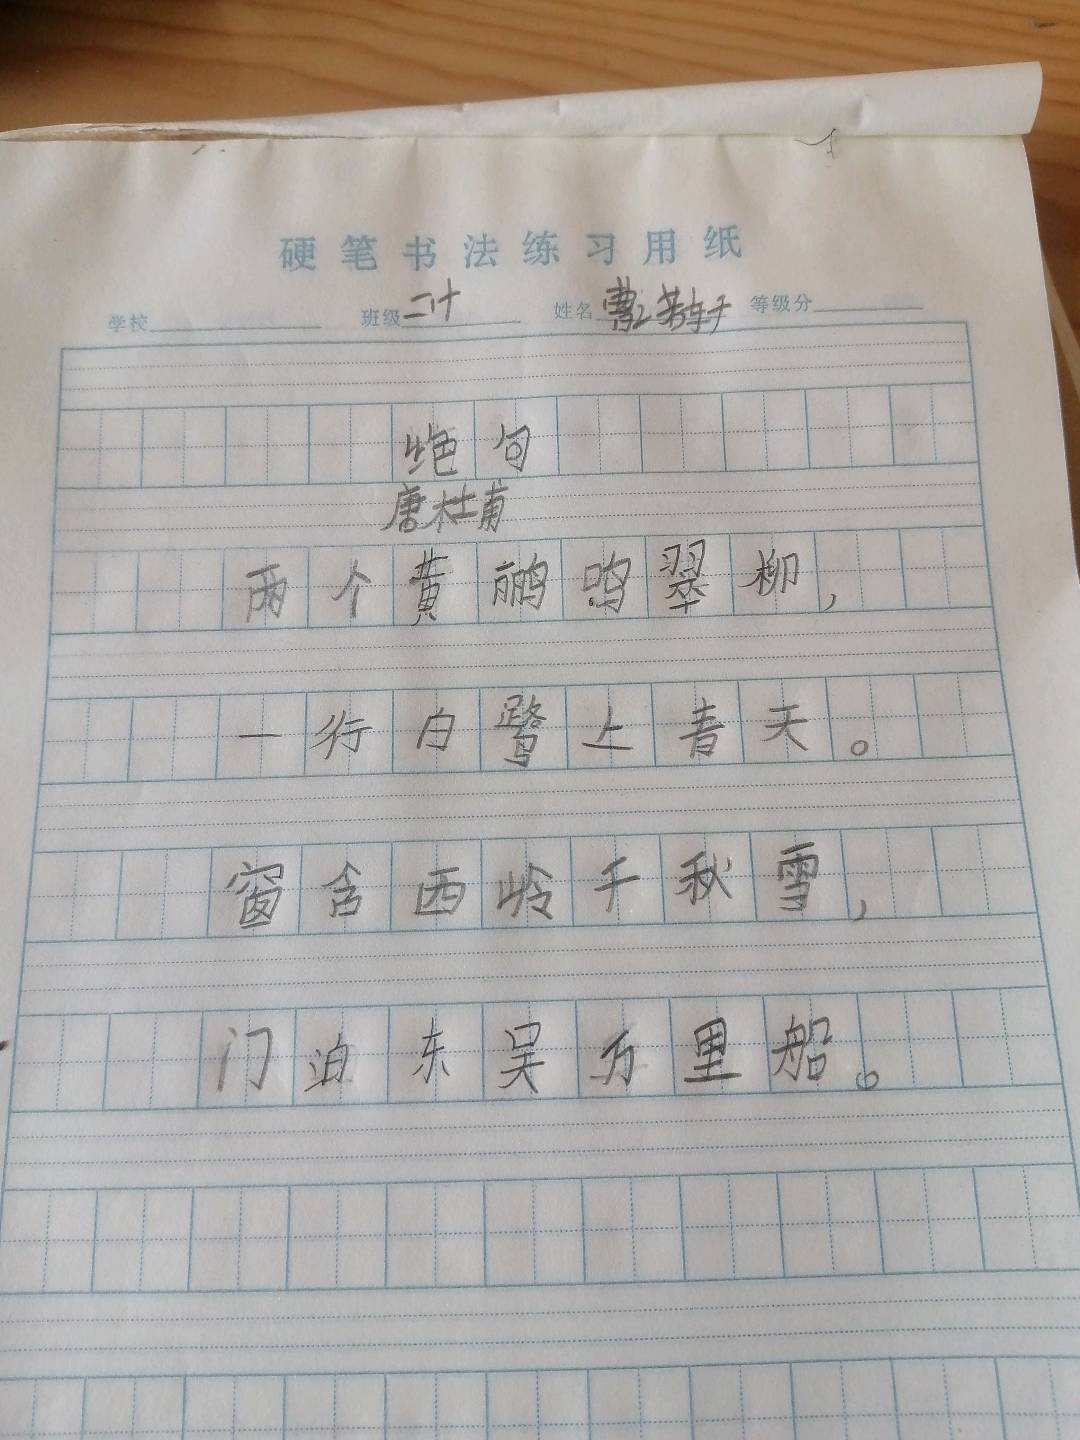 硬笔书法练习用纸
学校 班级 二计 姓名 曹 等级分
绝句
唐杜甫
两个黄鹂鸣翠柳，
一行白鹭上青天。
窗含西岭千秋雪，
门泊东吴万里船。